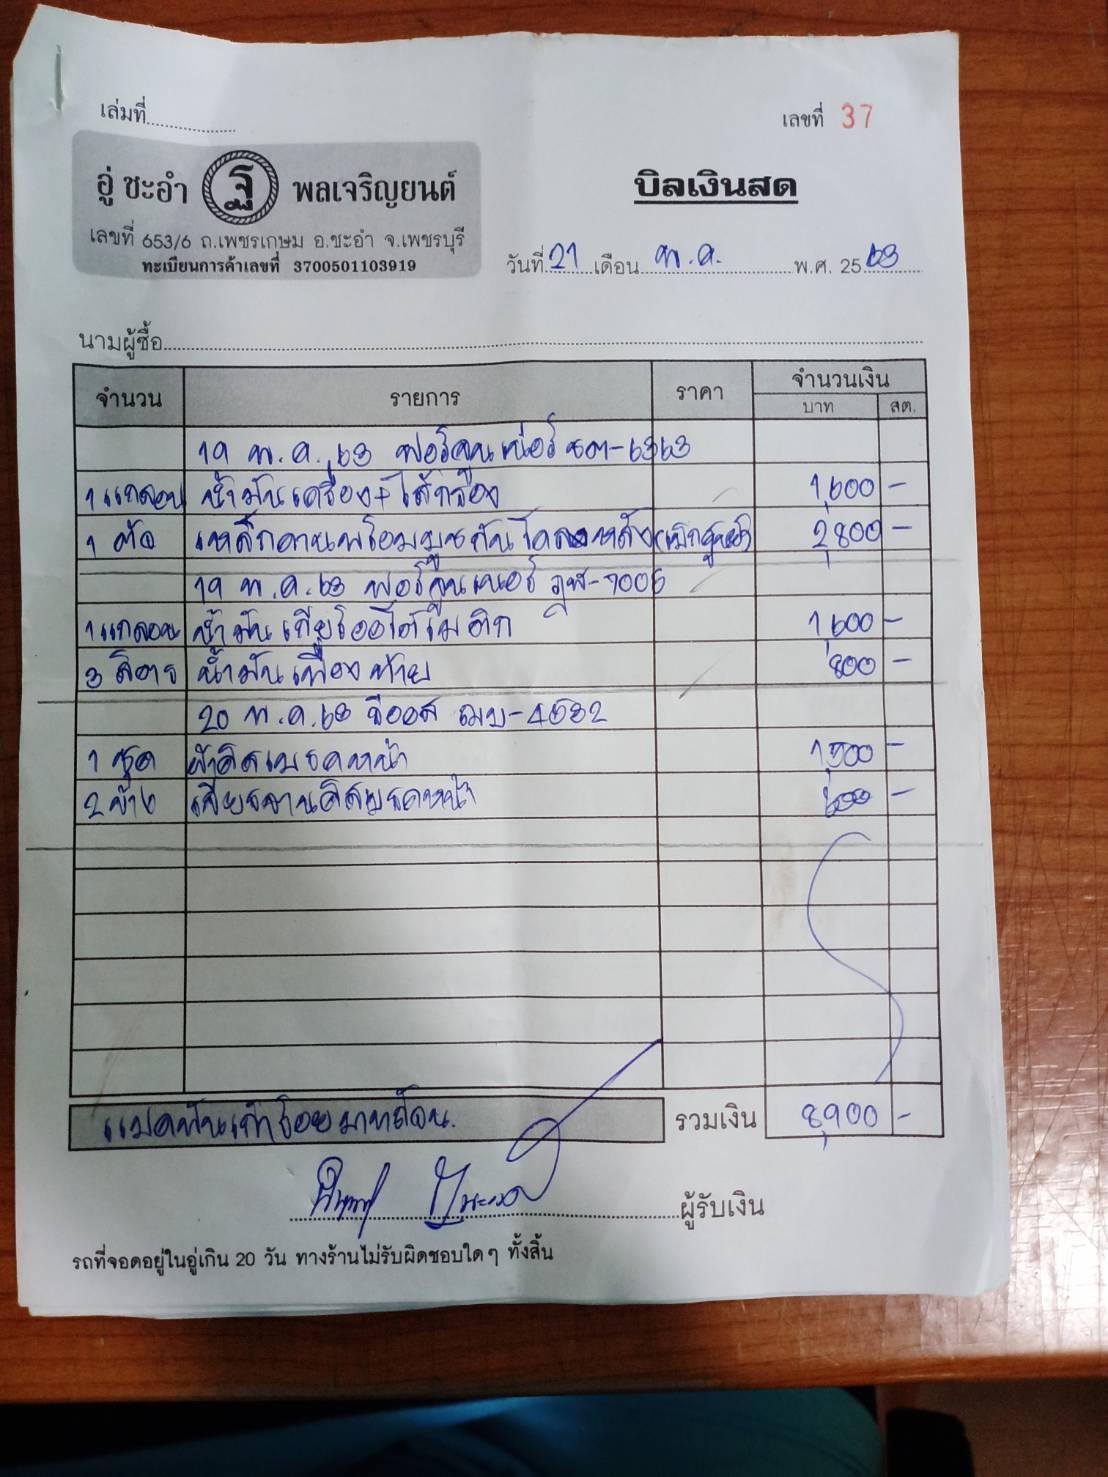 เล่มที่
เลขที่ 37
อู่ ชะอำ ฐ พลเจริญยนต์
บิลเงินสด
เลขที่ 653/6 ถ.เพชรเกษม อ.ชะอำ จ.เพชรบุรี
ทะเบียนการค้าเลขที่ 3700501103919
วันที่ 21 เดือน พ.ค. พ.ศ. 2563
นามผู้ซื้อ
จำนวน รายการ ราคา จำนวนเงิน
บาท สต.
19 พ.ค. 63 ฟอร์จูนเนอร์ 6363
1 แกลอน น้ำมันเครื่อง+ไส้กรอง 1,600 -
1 ตัว เหล็ก 2,800 -
19 พ.ค. 63 ฟอร์จูนเนอร์ 7005
1 แกลอน น้ำมันเกียร์ออโตโมติก 1,600 -
3 ลิตร น้ำมันเฟืองท้าย 800 -
20 พ.ค. 63 วีออส ฌบ-4532
1 ชุด ผ้าดิสเบรคหน้า 1,500 -
2 ข้าง เจียรจานดิสเบรคหน้า 600 -
แปดพันเก้าร้อยบาทถ้วน. รวมเงิน 8,900 -
ผู้รับเงิน
รถที่จอดอยู่ในอู่เกิน 20 วัน ทางร้านไม่รับผิดชอบใดๆ ทั้งสิ้น